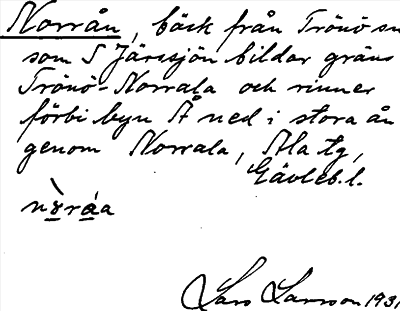 Norrån, bäck från Trönö sn
som S Järvsjön bildar gräns
Trönö-Norrala och rinner
förbi byn Å ned i stora ån
genom Norrala, Ala tg,
Gävleb. l.
nòráa
Lars Larsson 1931